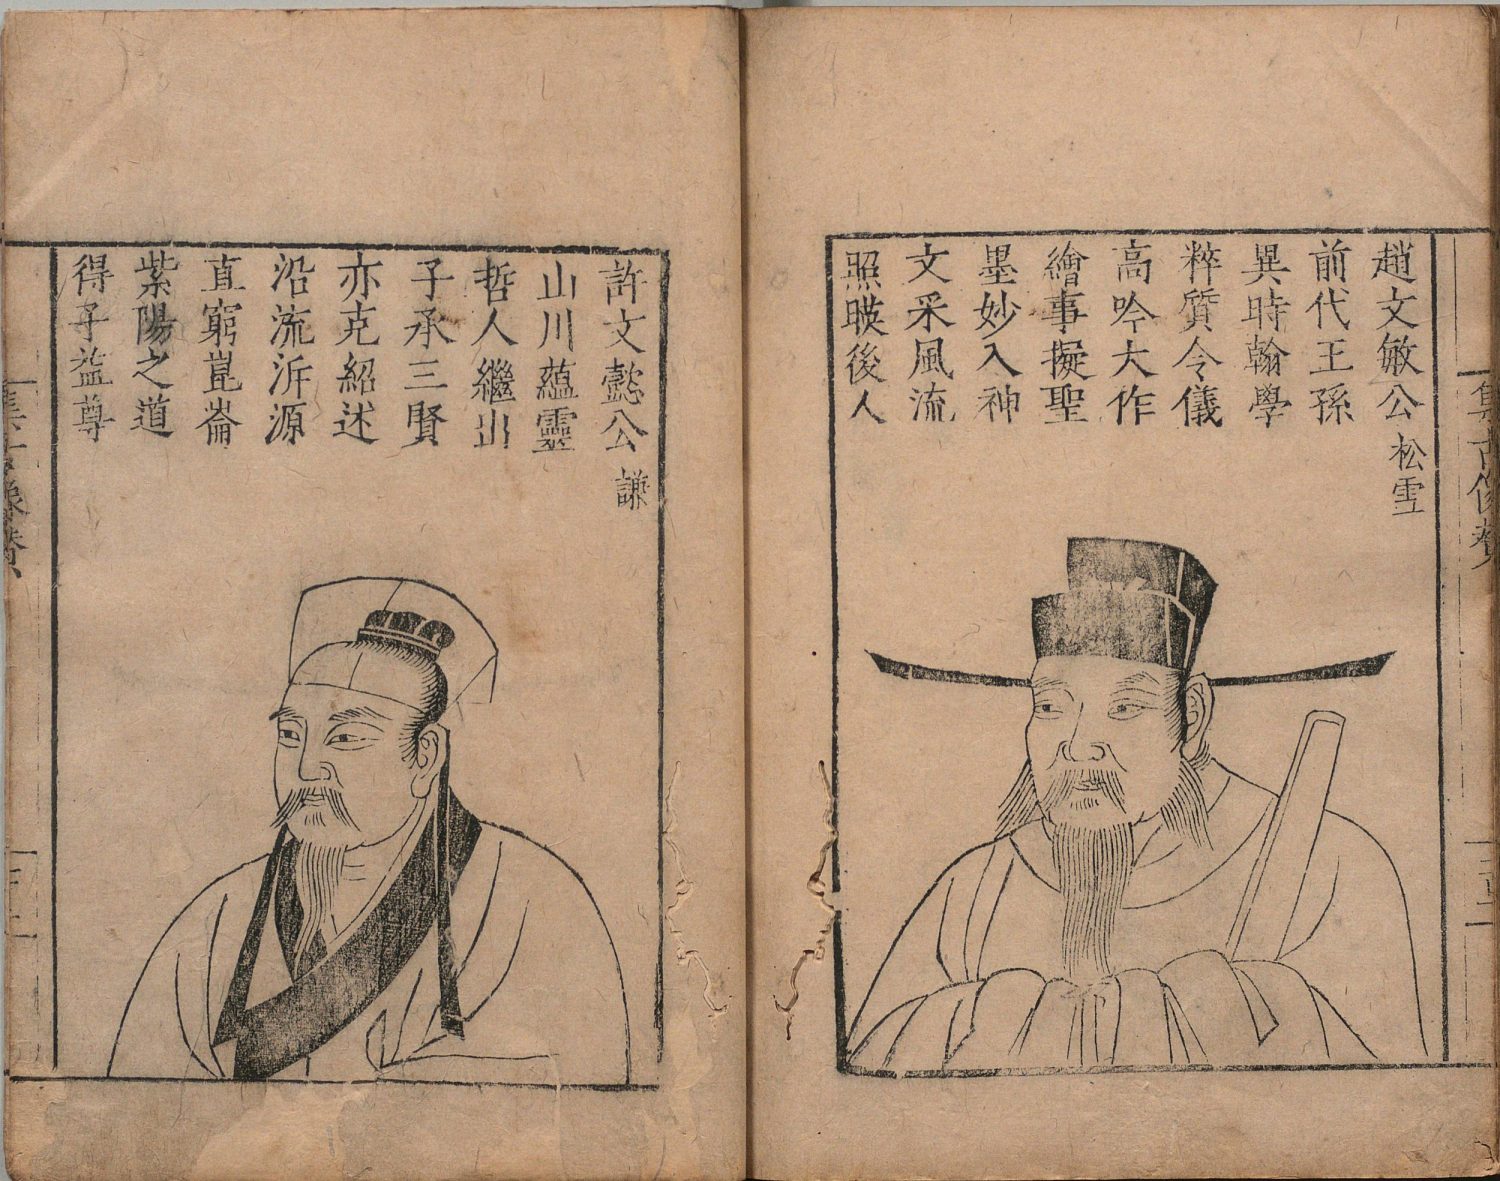 集古像贊
趙文敏公 松雪
前代王孫
異時翰學
粹質令儀
高吟大作
繪事擬聖
墨妙入神
文采風流
照暎後人
許文懿公 謙
山川蘊靈
哲人繼出
子承三賢
亦克紹述
沿流泝源
直窮崑崙
紫陽之道
得子益尊
集古像贊